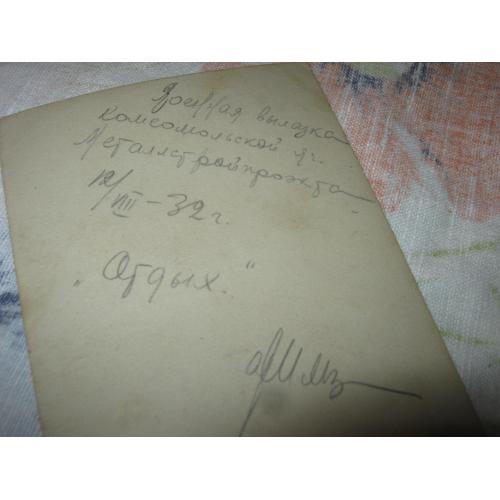 Военная вылазка
Комсомольской яч.
Металлстройпроэкта
12/VIII – 32 г.
„Отдых.“